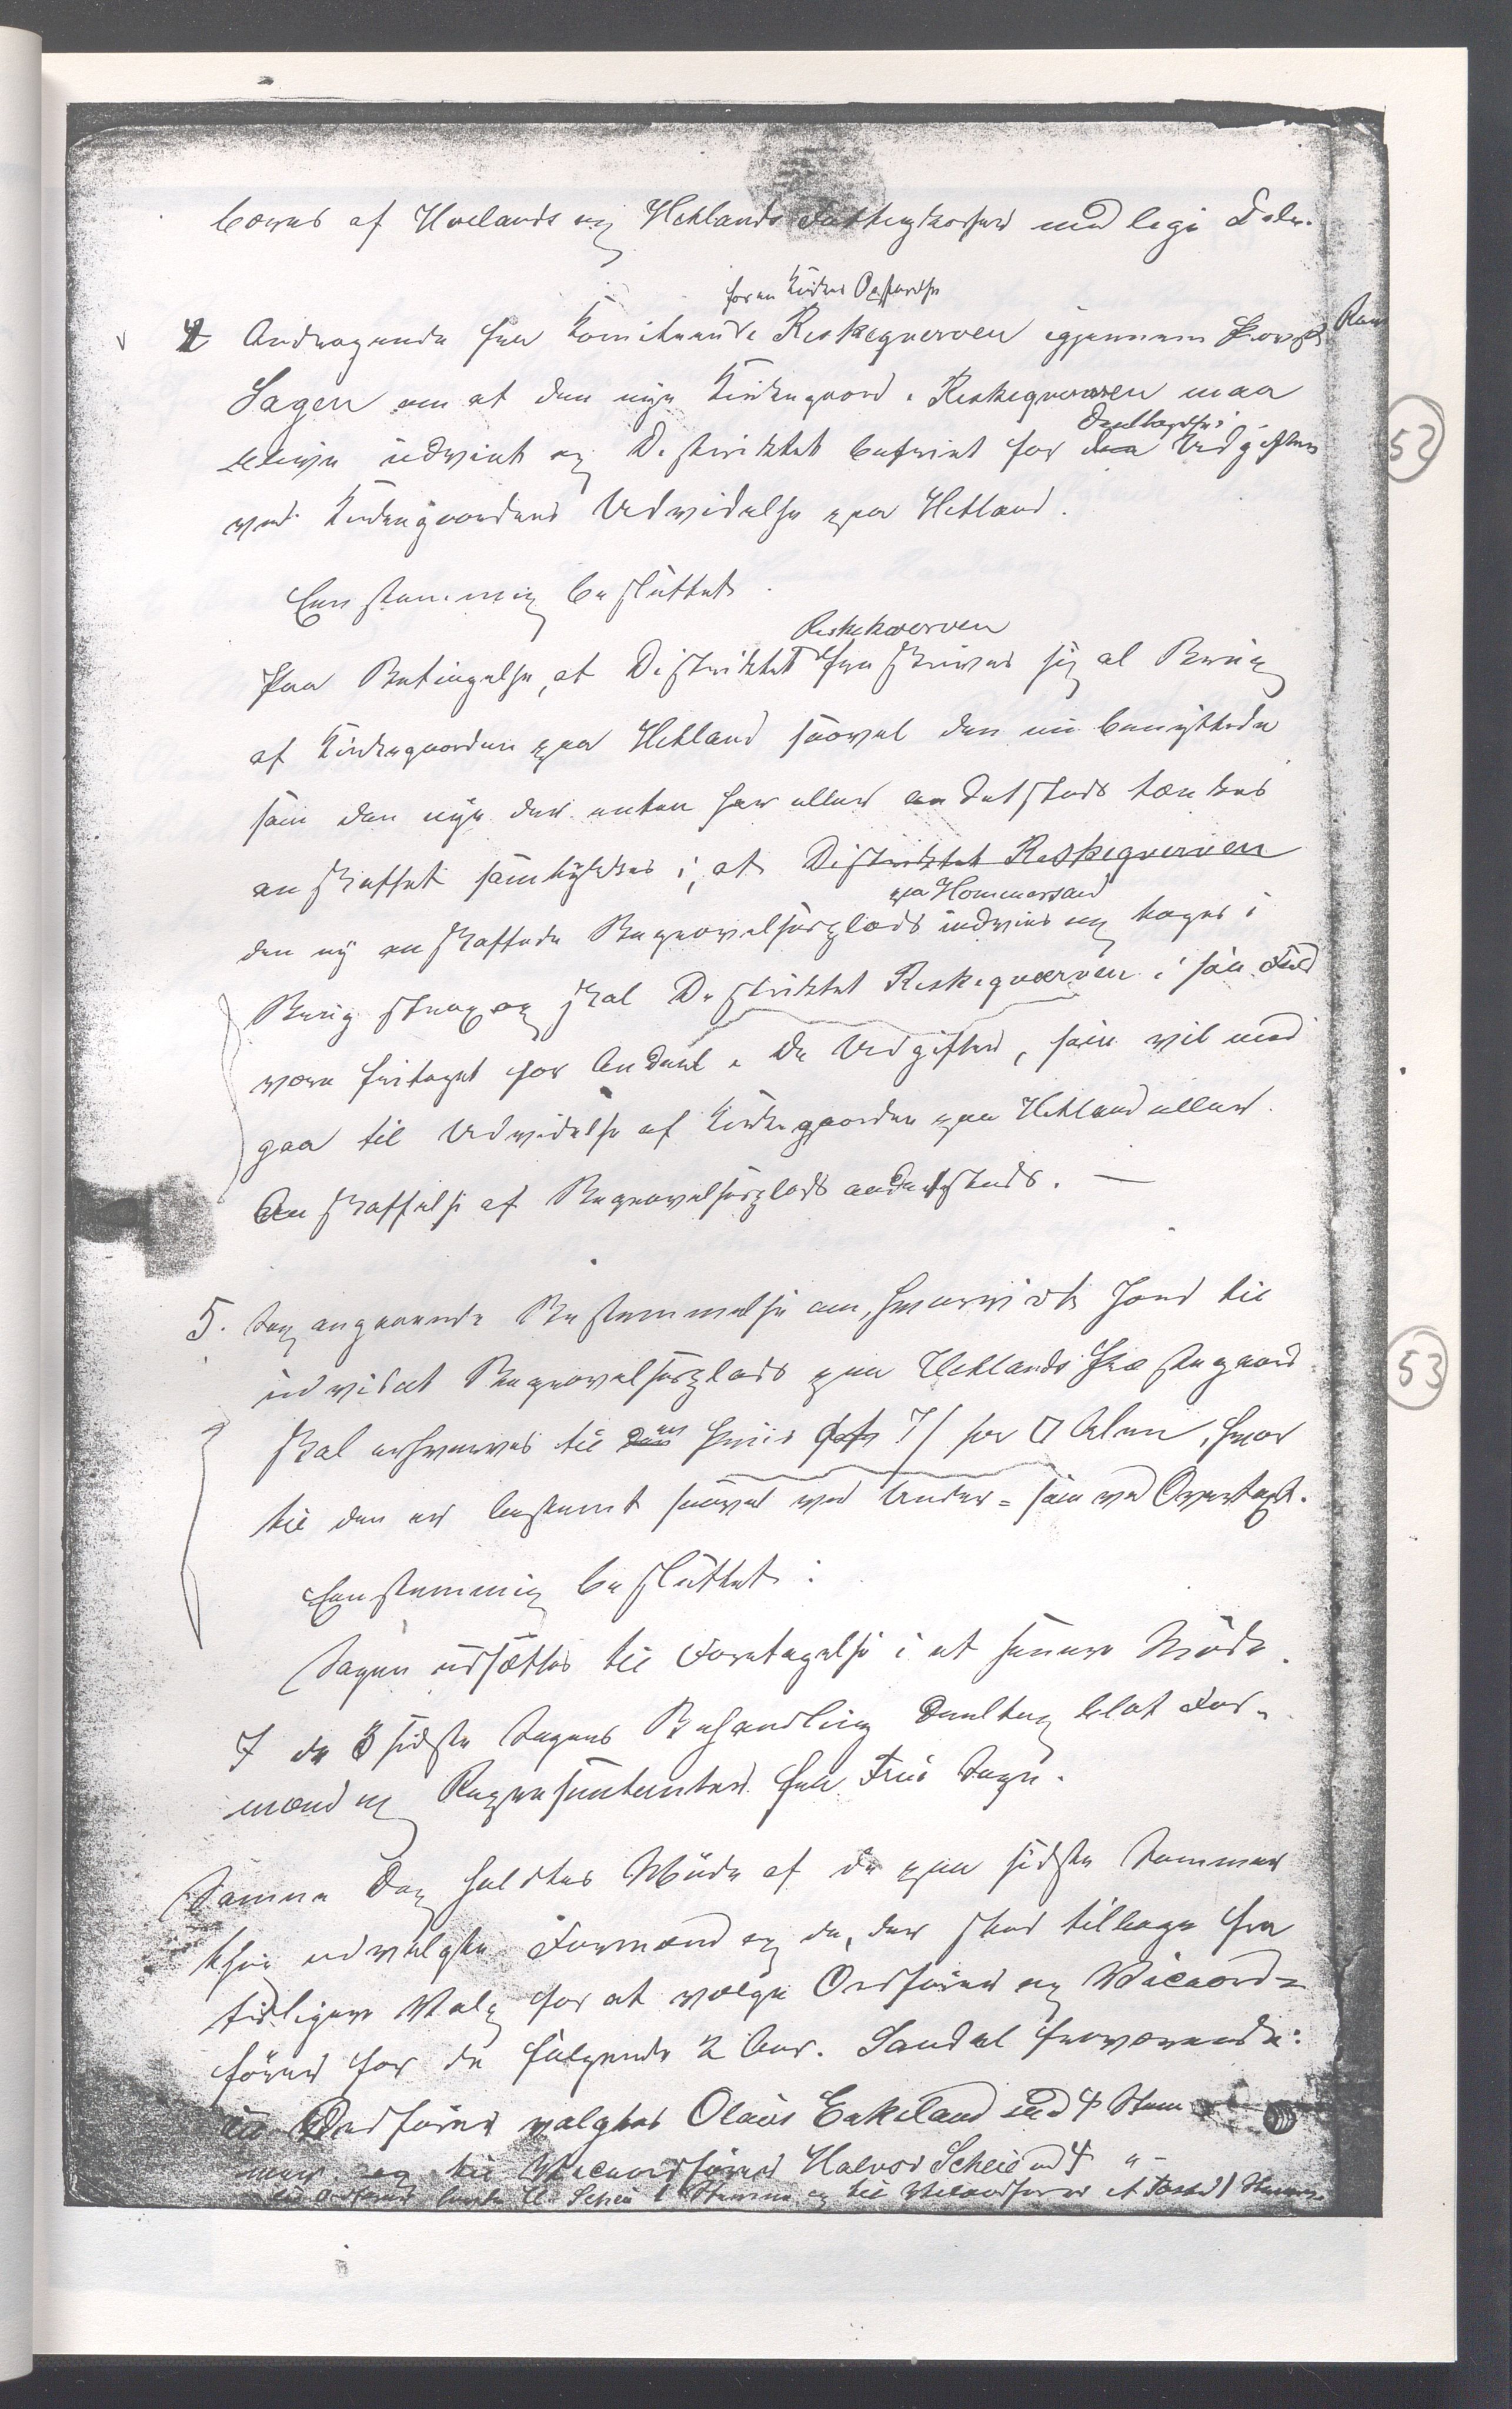 bæres af Hvelands og Hetlands Fattigkasser med lige Dele.
for en Kirkes Opførelse
4 Andragende fra Komiteen i Riskeqverven igjennem
Sagen om at den nye Kirkegaard i Riskeqverven maa
Deeltagelse i
blive indviet og Distriktet befriet for den Udgiften
ved Kirkegaardens Udvidelse paa Hetland.
Eenstemmig besluttet.
Riskekverven
Paa Betingelse, at Distriktet fraskriver sig al Brug
af Kirkegaarden paa Hetland saavel den nu benyttede
som den nye der enten her eller andetsteds tænkes
anskaffet samtykkes i, at Distriktet Riskeqverven
paa Hommersand
den ny anskaffede Begravelsesplads indvies og tages i
Brug strax og skal Distriktet Riskeqværven i saa Fald
være fritaget for Andeel i de Udgifter, som vil med
gaa til Udvidelse af Kirkegaarden paa Hetland eller
Anskaffelse af Begravelsesplads andetsteds. —
5. Sag angaaende Bestemmelse om, hvorvidt Jord til
udvidet Begravelsesplads paa Hetlands Præstegaard
skal erhverves til den Priis 7/ for □ Alen, hvor
til den er bestemt saavel ved Under- som ved Overtaxt.
Eenstemmig besluttet:
Sagen udsættes til Foretagelse i et senere Møde.
I de 3 sidste Sagers Behandling deeltog blot For-
mænd og Repræsentanter fra Frue Sogn.
Samme Dag holdtes Møde af de paa sidste Sommer
thing udvalgte Formænd og de, der staar tilbage fra
tidligere Valg for at vælge Ordfører og Viceord-
fører for de følgende 2 Aar. Samtel fraværende:
til Ordfører valgtes Olaus Eskeland med 4 Stem
mer og til Viceordfører Halvor Scheie med 4 " -
til Ordfører havde H. Scheie 1 Stemme og til Viceordfører 1 Stemme
52
53